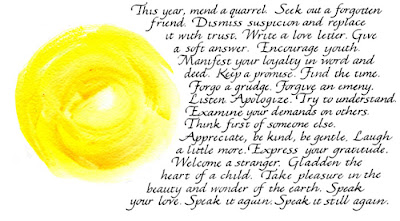 This year, mend a quarrel. Seek out a forgotten
friend. Dismiss suspicion and replace
it with trust. Write a love letter. Give
a soft answer. Encourage youth.
Manifest your loyalty in word and
deed. Keep a promise. Find the time.
Forgo a grudge. Forgive an emeny.
Listen. Apologize. Try to understand.
Examine your demands on others.
Think first of someone else.
Appreciate, be kind, be gentle. Laugh
a little more. Express your gratitude.
Welcome a stranger. Gladden the
heart of a child. Take pleasure in the
beauty and wonder of the earth. Speak
your love. Speak it again. Speak it still again.